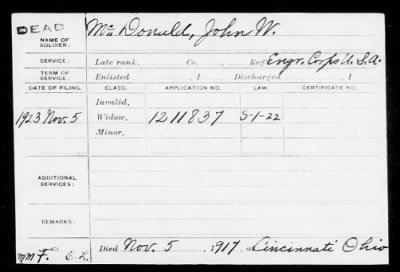 DEAD
NAME OF SOLDIER: McDonald, John W.
SERVICE: Late rank, Co. Reg Engr. Corps U.S.A.
TERM OF SERVICE: Enlisted , 1 Discharged , 1
DATE OF FILING. CLASS. APPLICATION NO. LAW. CERTIFICATE NO.
Invalid,
1923 Nov. 5 Widow, 1211837 S-1-22
Minor,
ADDITIONAL SERVICES:
REMARKS:
Died Nov. 5, 1917, Cincinnati Ohio